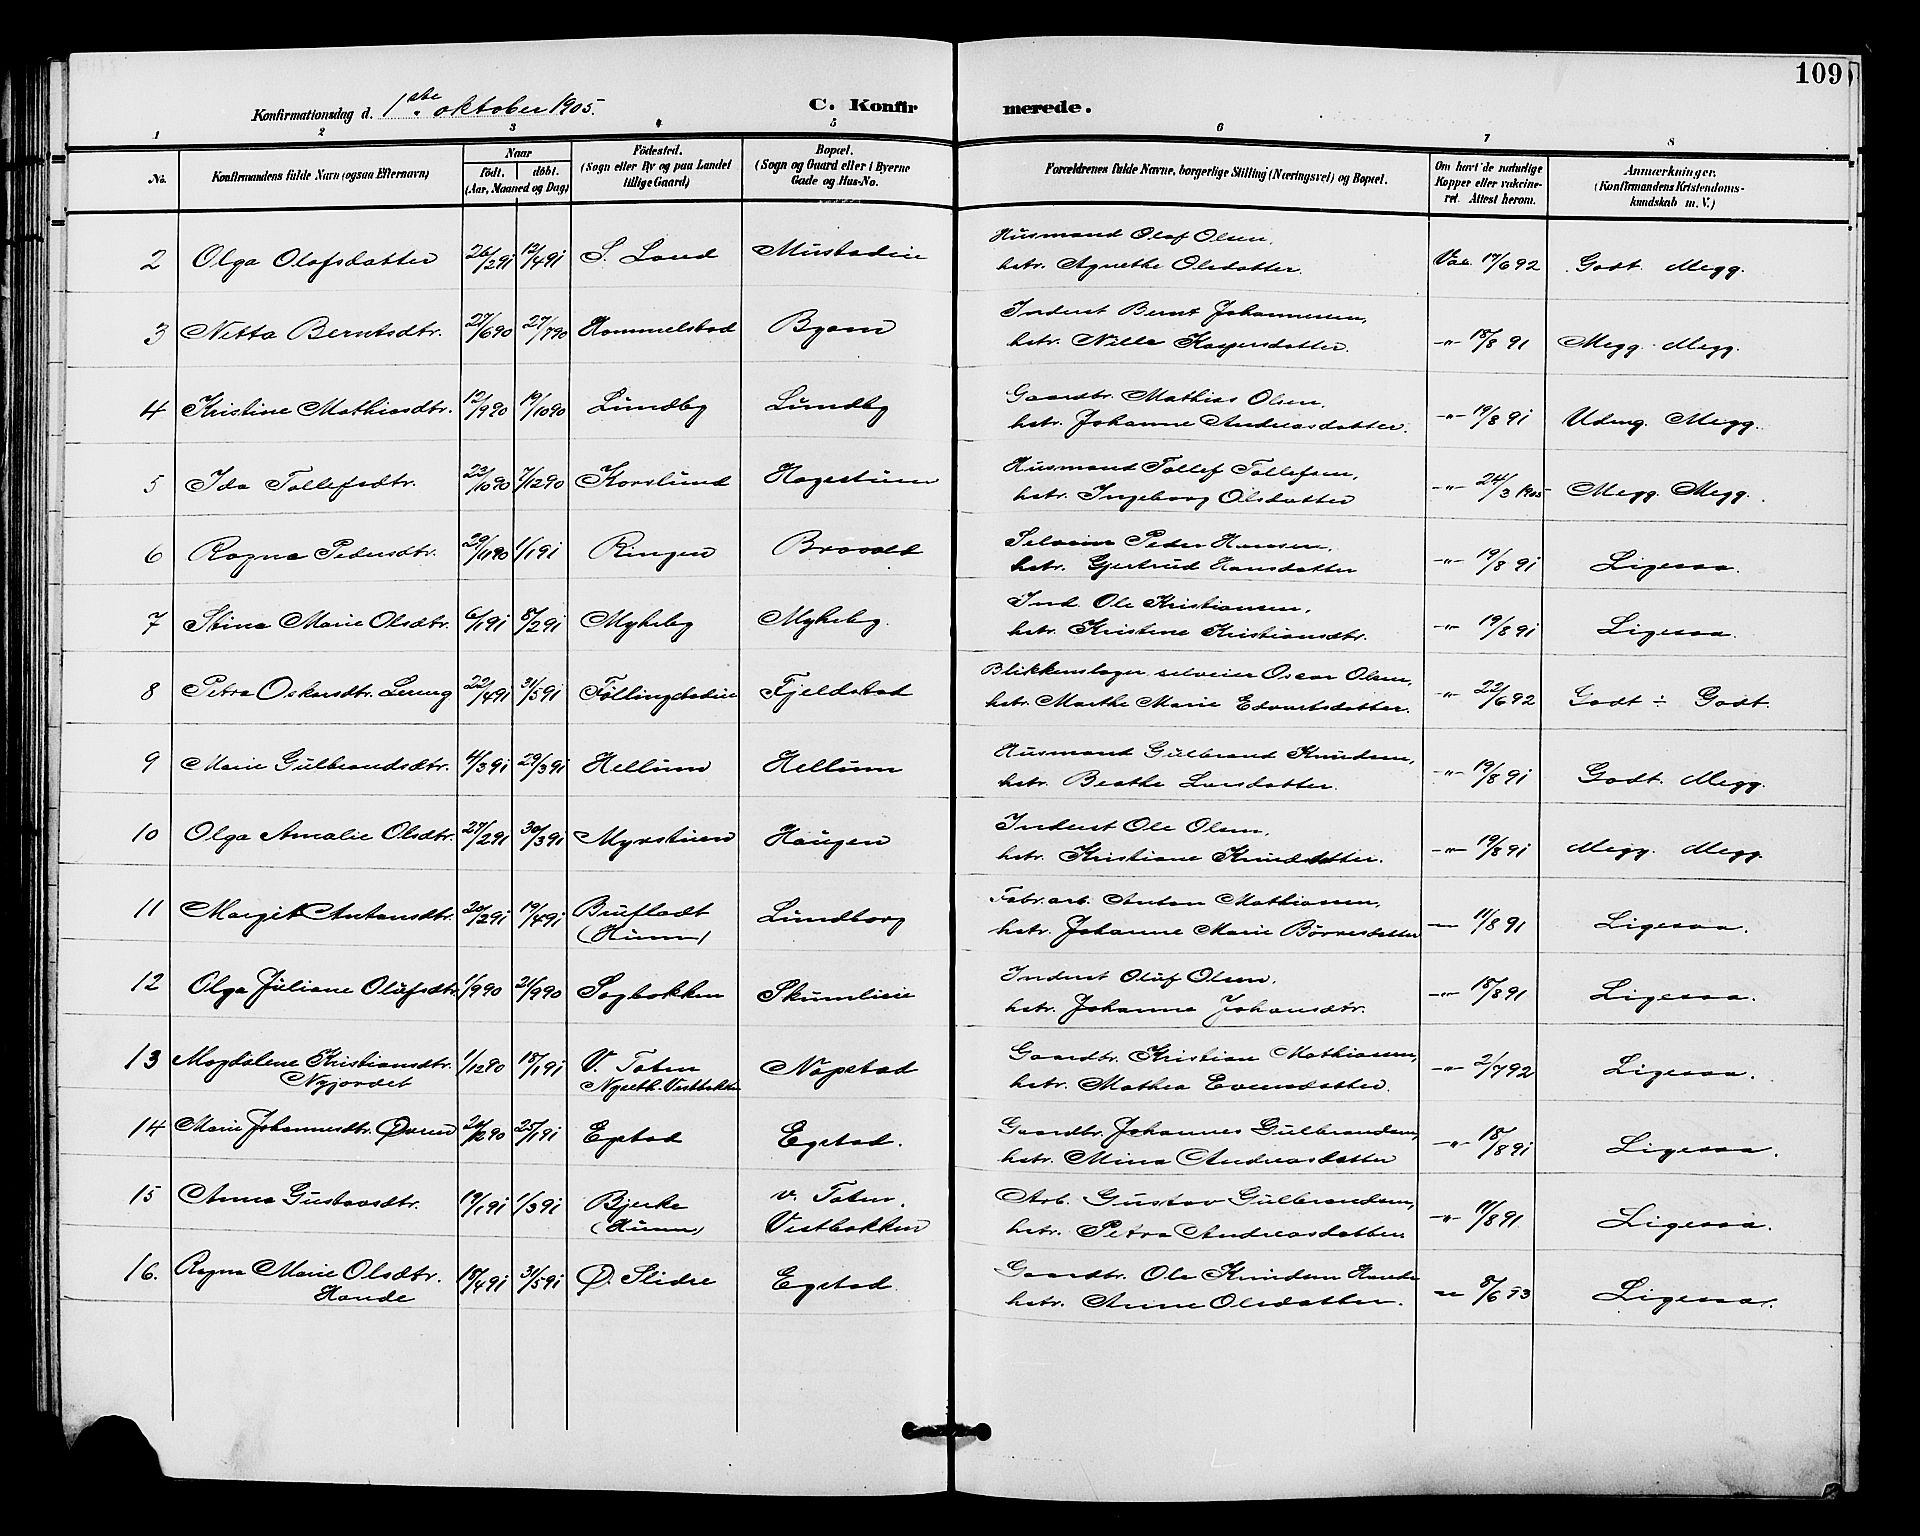 109
Konfirmationsdag d. 1ste oktober 1905.
C. Konfirmerede.
1 2 3 4 5 6 7 8
No.
Konfirmandens fulde Navn (ogsaa Efternavn)
Naar
födt. döbt.
(Aar, Maaned og Dag)
Födested.
(Sogn eller By og paa Landet
tillige Gaard)
Bopæl.
(Sogn og Gaard eller i Byerne
Gade og Hus-No.
Forældrenes fulde Navne, borgerlige Stilling (Næringsvei) og Bopæl.
Om havt de naturlige
Kopper eller vakcine-
ret. Attest herom.
Anmærkninger.
(Konfirmandens Kristendoms-
kundskab m. V.)
2 Olga Olafsdatter 26/2 91 12/4 91 S. Land Mustadeie
Husmand Olaf Olsen,
hstr. Agnethe Olsdatter. Vac. 17/6 92 Godt. Megg.
3 Netta Berntsdtr. 27/6 90 27/7 90 Hommelstad Byom
Inderst Bernt Johannesen,
hstr. Nilla Kaspersdatter. -"- 18/8 91 Megg. Megg.
4 Kristine Mathiasdtr. 12/9 90 19/10 90 Lundby Lundby
Gaardbr. Mathias Olsen,
hstr. Johanne Andreasdatter. -"- 19/8 91 Udmg. Megg.
5 Ida Tollefsdtr. 22/10 90 7/12 90 Korslund Hagestuen
Husmand Tollef Tollefsen,
hstr. Ingeborg Olsdatter -"- 24/3 1905 Megg. Megg.
6 Ragna Pedersdtr. 29/11 90 1/1 91 Ringen Bravold
Selveier Peder Hansen,
hstr. Gjertrud Hansdatter -"- 19/8 91 Ligesaa.
7 Stina Marie Olsdtr. 6/1 91 8/2 91 Mykeby Mykeby.
Ind. Ole Kristiansen,
hstr. Kristine Kristiansdtr. -"- 19/8 91 Ligesaa.
8 Petra Oskarsdtr. Lereng 22/4 91 31/5 91 Føllingstadeie Fjeldstad
Blikkenslager selveier Oscar Olsen,
hstr. Marthe Marie Edvartsdatter. -"- 22/6 92 Godt ÷ Godt.
9 Marie Gulbrandsdtr. 4/3 91 29/3 91 Hellum Hellum
Husmand Gulbrand Knudsen,
hstr. Beathe Larsdatter. -"- 19/8 91 Godt. Megg.
10 Olga Amalie Olsdtr. 27/2 91 30/3 91 Myrstuen Haugen
Inderst Ole Olsen,
hstr. Kristiane Knudsdatter. -"- 19/8 91 Megg. Megg.
11 Margit Antonsdtr. 20/2 91 19/4 91 Brufladt Lundborg
(Hunn)
Fabr.arb. Anton Mathiasen,
hstr. Johanne Marie Børresdatter -"- 11/8 91 Ligesaa.
12 Olga Juliane Olufsdtr. 1/9 90 21/9 90 Sagbakken Skumlieie
Inderst Oluf Olsen.
hstr. Johanna Johansdtr. -"- 18/8 91 Ligesaa.
13 Magdalene Kristiansdtr. 1/12 90 18/1 91 V. Toten Nøpstad
Nyjordet Nyseth. Vestbakken
Gaardbr. Kristian Mathiasen,
hstr. Mathea Evensdatter. -"- 2/7 92 Ligesaa.
14 Marie Johannesdtr. Øveren 20/12 90 25/1 91 Egstad Egstad.
Gaardbr. Johannes Gulbrandsen,
hstr. Mina Andreasdatter -"- 18/8 91 Ligesaa.
15 Anna Gustavsdtr. 19/1 91 1/3 91 Bjerke v. Toten.
(Hunn) Vestbakken
Arb. Gustav Gulbrandsen,
hstr. Petra Andreasdatter. -"- 11/8 91 Ligesaa.
16. Ragna Marie Olsdtr. 18/4 91 31/5 91 Ø. Slidre Egstad.
Hande
Gaardbr. Ole Knudsen Hande
hstr. Anne Olsdatter. -"- 8/6 93 Ligesaa.